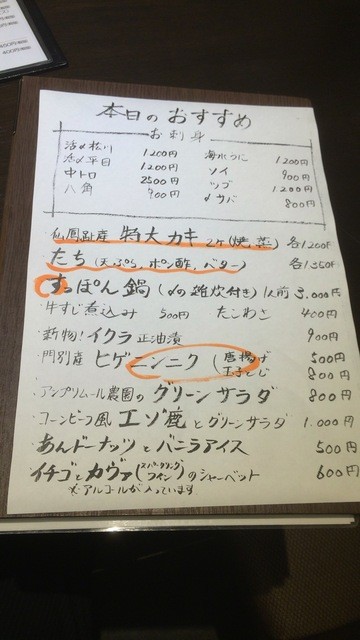 本日のおすすめ
お刺身
活〆松川 1200円 海水うに 1200円
活〆平目 1200円 ソイ 900円
中トロ 2500円 ツブ 1200円
八角 900円 〆サバ 800円
・仙鳳趾産 特大カキ 2ケ(焼、蒸) 各1200円
・たち(天ぷら、ポン酢、バター) 各1350円
・すっぽん鍋(〆の雑炊付き)1人前 3.000円
・牛すじ煮込み 500円 たこわさ 400円
・新物!イクラ正油漬 900円
・門別産 ヒゲニンニク(唐揚げ 500円
玉子とじ 800円
・アンプリムール農園のグリーンサラダ 800円
・コーンビーフ風 エゾ鹿とグリーンサラダ 1.000円
・あんドーナッツとバニラアイス 500円
・イチゴとカヴァ(スパークリングワイン)のシャーベット 600円
※アルコールが入っています